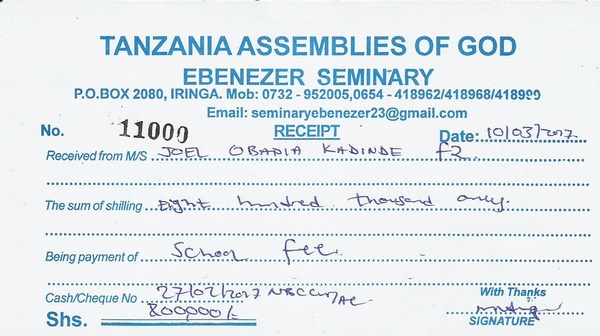 TANZANIA ASSEMBLIES OF GOD
EBENEZER SEMINARY
P.O.BOX 2080, IRINGA. Mob: 0732 - 952005,0654 - 418962/418968/418999
Email: seminaryebenezer23@gmail.com
No. 11000 RECEIPT Date: 10/03/2017
Received from M/S JOEL OBADIA KADINDE f2
The sum of shilling Eight hundred thousand only.
Being payment of School fee.
Cash/Cheque No 27/02/2017 NBC With Thanks
Shs. 800000/= SIGNATURE